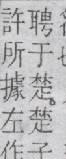 聘于楚。楚子
許所據左作